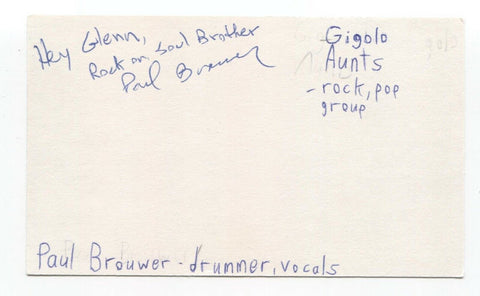 Hey Glenn,
Rock on, Soul Brother
Paul Brouwer
Gigolo
Aunts
- rock, pop
group
Paul Brouwer - drummer, vocals